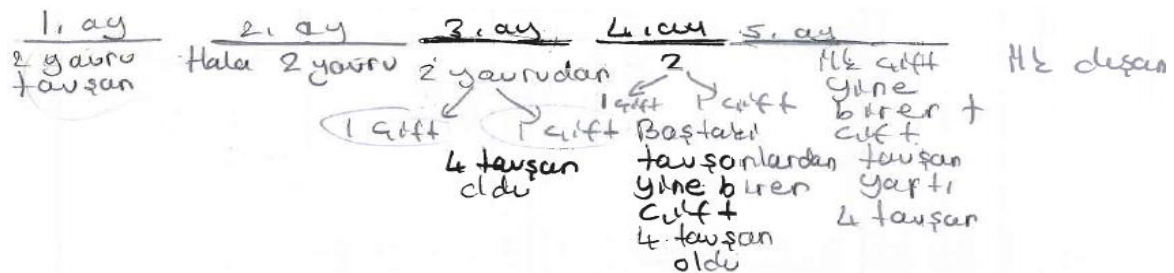 1. ay 2. ay 3. ay 4. ay 5. ay
2 yavru
tavşan
Hala 2 yavru
2 yavrudan
1 Çift 1 Çift
4 tavşan
oldu
2
1 Çift 1 Çift
Baştaki
tavşanlardan
yine birer
çift
4 tavşan
oldu
İlk Çift
yine
birer t
çift
tavşan
yaptı
4 tavşan
İlk